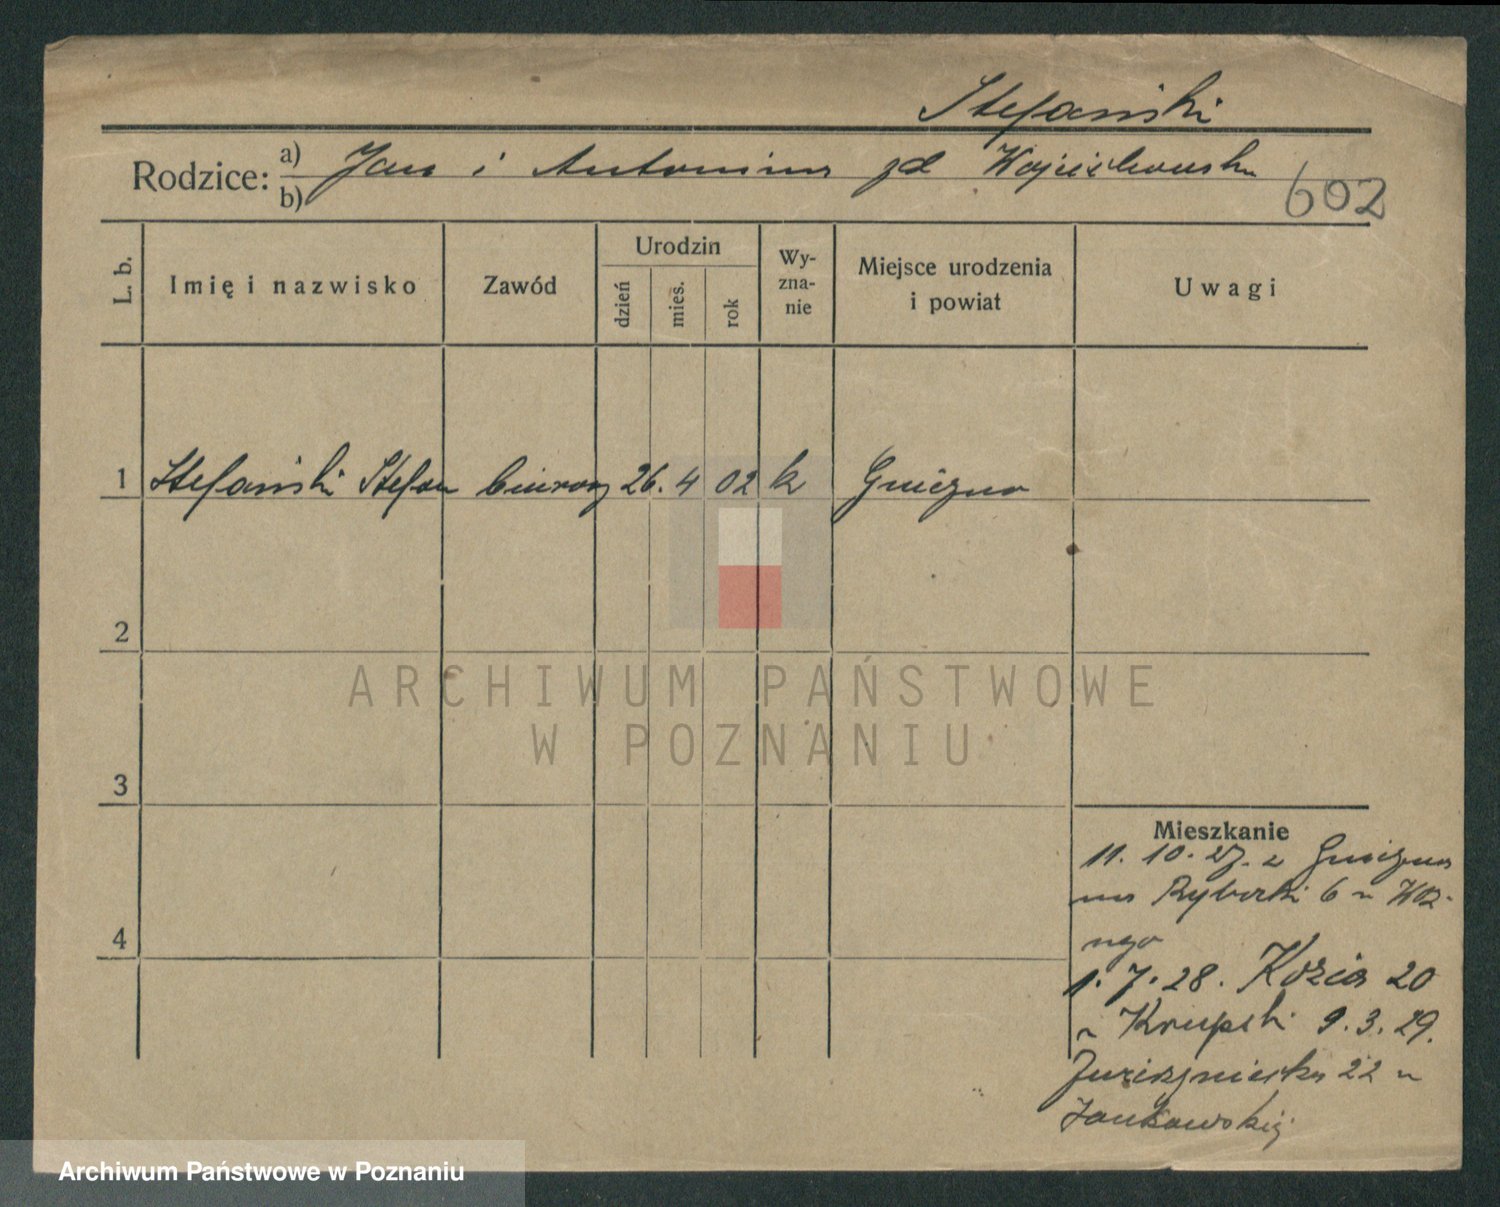 Stefański
Rodzice: a) Jan i Antonina zd Wojciechowska
b)
602
L. b.
Imię i nazwisko
Zawód
Urodzin
dzień
mies.
rok
Wy-
zna-
nie
Miejsce urodzenia
i powiat
Uwagi
1 Stefański Stefan biurowy 26. 4 02 k Gniezno
2
ARCHIWUM PAŃSTWOWE
W POZNANIU
3
Mieszkanie
11. 10. 27. z Gniezna
na Rybaki 6 u Woź-
nego
4
1. 7. 28. Kozia 20
u Krupski 9. 3. 29.
22 u
Jankowskiej
Archiwum Państwowe w Poznaniu